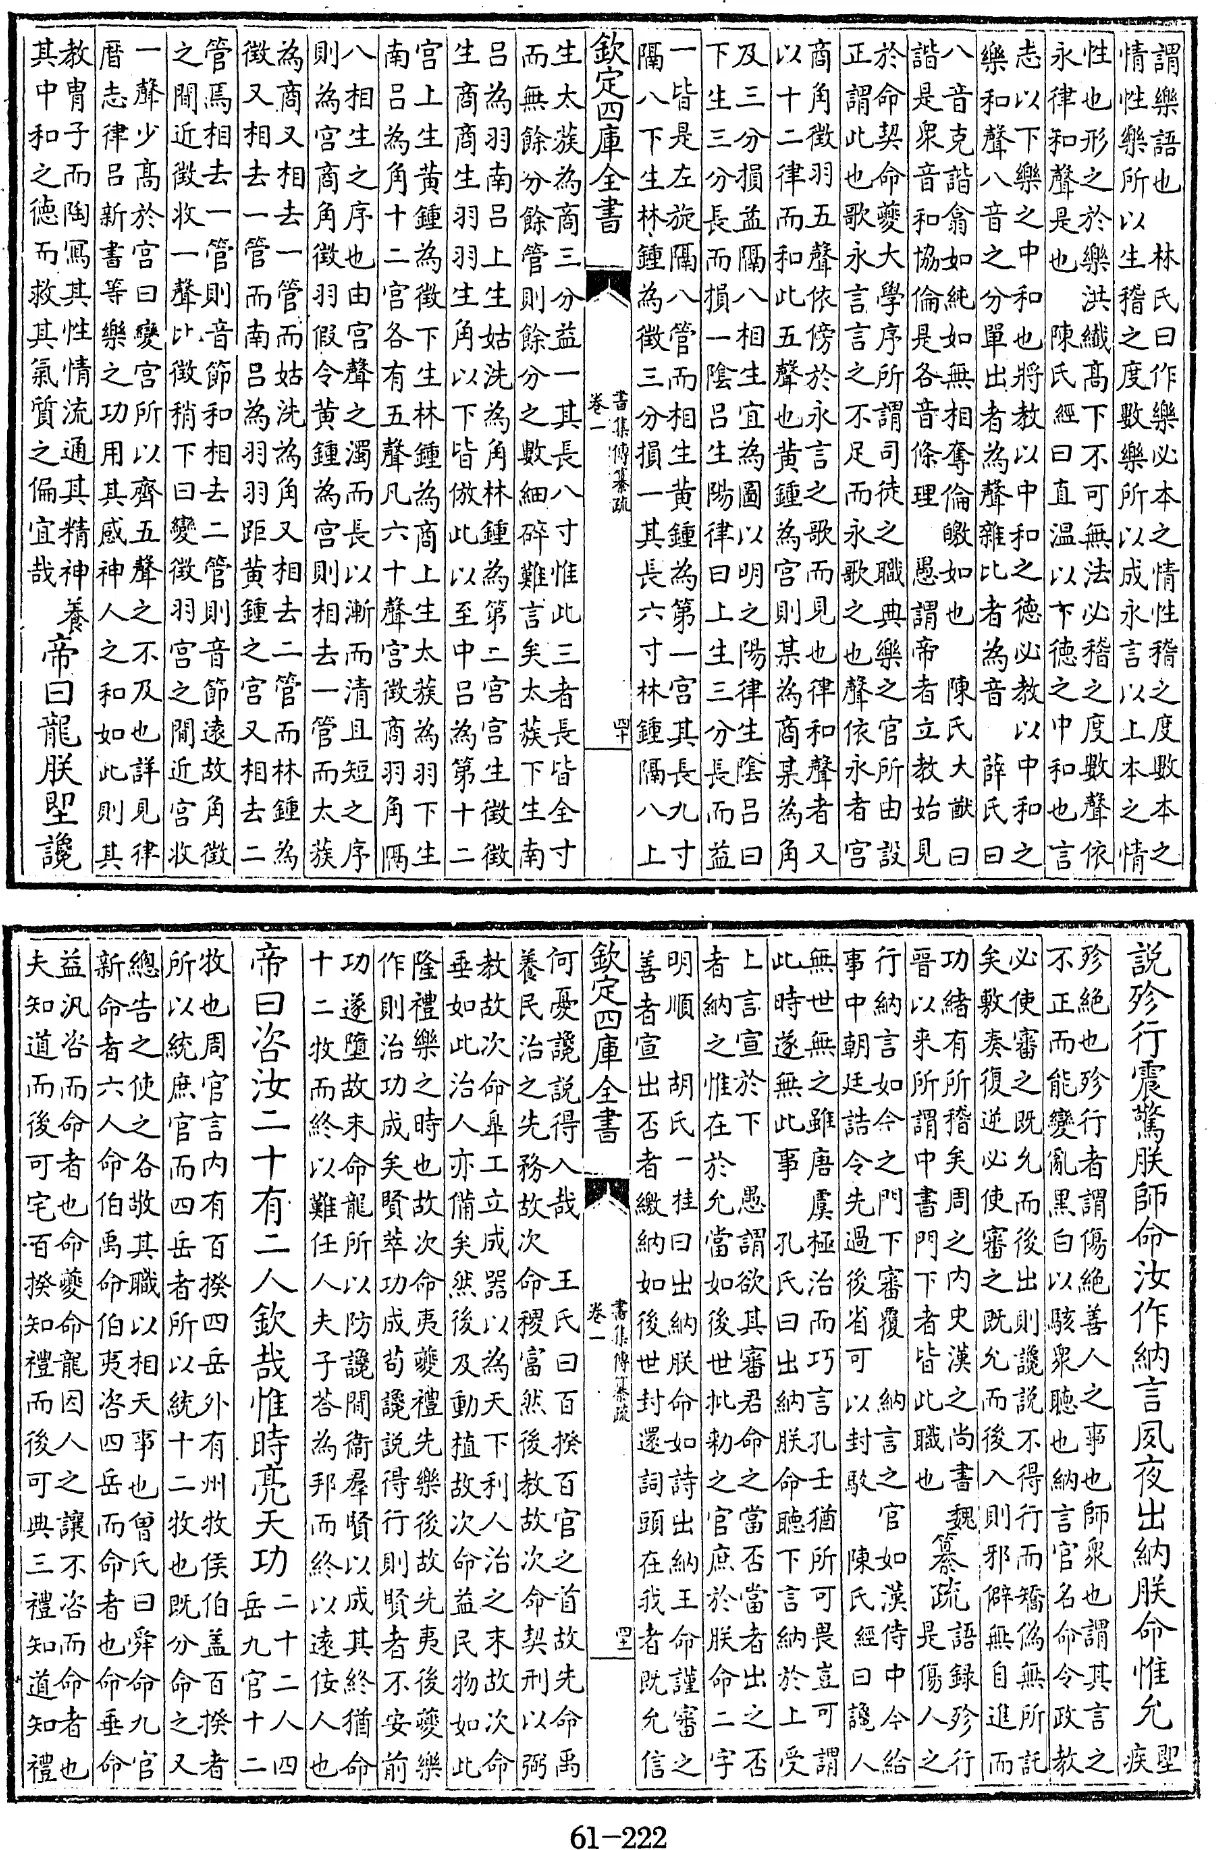 謂樂語也　林氏曰作樂必本之情性稽之度數本之
情性樂所以生稽之度數樂所以成永言以上本之情
性也形之於樂洪纖髙下不可無法必稽之度數聲依
永律和聲是也　陳氏經曰直温以下德之中和也言
志以下樂之中和也將教以中和之德必教以中和之
樂和聲八音之分單出者為聲雜比者為音　薛氏曰
八音克諧翕如純如無相奪倫皦如也　陳氏大猷曰
諧是衆音和協倫是各音條理　愚謂帝者立教始見
於命契命夔大學序所謂司徒之職典樂之官所由設
正謂此也歌永言言之不足而永歌之也聲依永者宮
商角徵羽五聲依傍於永言之歌而見也律和聲者又
以十二律而和此五聲也黄鍾為宮則某為商某為角
及三分損益隔八相生宜為圖以明之陽律生陰呂曰
下生三分長而損一陰呂生陽律曰上生三分長而益
一皆是左旋隔八管而相生黄鍾為第一宮其長九寸
隔八下生林鍾為徵三分損一其長六寸林鍾隔八上
欽定四庫全書
書集傳纂疏
卷一
罕
生太蔟為商三分益一其長八寸惟此三者長皆全寸
而無餘分餘管則餘分之數細碎難言矣太蔟下生南
呂為羽南呂上生姑洗為角林鍾為第二宮宮生徵徵
生商商生羽羽生角以下皆倣此以至中呂為第十二
宮上生黄鍾為徵下生林鍾為商上生太蔟為羽下生
南呂為角十二宮各有五聲凡六十聲宮徵商羽角隔
八相生之序也由宮聲之濁而長以漸而清且短之序
則為宮商角徵羽假令黄鍾為宮則相去一管而太蔟
為商又相去一管而姑洗為角又相去二管而林鍾為
徵又相去一管而南呂為羽羽距黄鍾之宮又相去二
管焉相去一管則音節和相去二管則音節遠故角徵
之間近徵收一聲比徵稍下曰變徵羽宮之間近宮收
一聲少髙於宮曰變宮所以齊五聲之不及也詳見律
厯志律呂新書等樂之功用其感神人之和如此則其
教冑子而陶冩其性情流通其精神養
其中和之德而救其氣質之偏宜哉
帝曰龍朕堲讒
說殄行震驚朕師命汝作納言夙夜出納朕命惟允
堲
疾
殄絶也殄行者謂傷絶善人之事也師衆也謂其言之
不正而能變亂黒白以駭衆聽也納言官名命令政教
必使審之既允而後出則讒說不得行而矯偽無所託
矣敷奏復逆必使審之既允而後入則邪僻無自進而
功緒有所稽矣周之内史漢之尚書魏
晉以來所謂中書門下者皆此職也
纂疏
語録殄行
是傷人之
行納言如今之門下審覆　納言之官如漢侍中今給
事中朝廷誥令先過後省可以封駮　陳氏經曰讒人
無世無之雖唐虞極治而巧言孔壬猶所可畏豈可謂
此時遂無此事　孔氏曰出納朕命聽下言納於上受
上言宣於下　愚謂欲其審君命之當否當者出之否
者納之惟在於允當如後世批勅之官庶於朕命二字
明順　胡氏一桂曰出納朕命如詩出納王命謹審之
善者宣出否者繳納如後世封還詞頭在我者既允信
欽定四庫全書
書集傳纂疏
卷一
何憂讒說得入哉　王氏曰百揆百官之首故先命禹
養民治之先務故次命稷富然後教故次命契刑以弼
教故次命臯工立成器以為天下利人治之末故次命
垂如此治人亦備矣然後及動植故次命益民物如此
隆禮樂之時也故次命夷夔禮先樂後故先夷後夔樂
作則治功成矣賢萃功成苟讒說得行則賢者不安前
功遂墮故末命龍所以防讒間衞羣賢以成其終猶命
十二牧而終以難任人夫子荅為邦而終以遠佞人也
帝曰咨汝二十有二人欽哉惟時亮天功
二十二人四
岳九官十二
牧也周官言内有百揆四岳外有州牧侯伯盖百揆者
所以統庶官而四岳者所以統十二牧也既分命之又
總告之使之各敬其職以相天事也曽氏曰舜命九官
新命者六人命伯禹命伯夷咨四岳而命者也命垂命
益汎咨而命者也命夔命龍因人之讓不咨而命者也
夫知道而後可宅百揆知禮而後可典三禮知道知禮
61-222